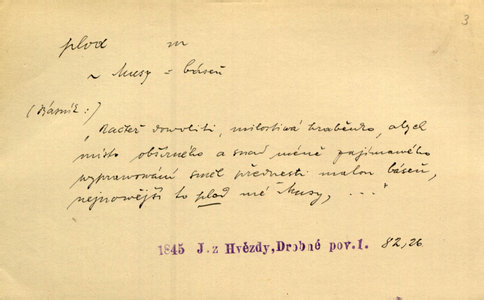 3
plod m
~ Musy = báseň
(Básník:)
"Račtež dowoliti, milostiwá hraběnko, abych
místo obšírného a snad méně zajímawého
wyprawowání směl přednesti malou báseň,
nejnowější to plod mé Musy, ..."
1845 J. z Hvězdy, Drobné pov. 1. 82,26